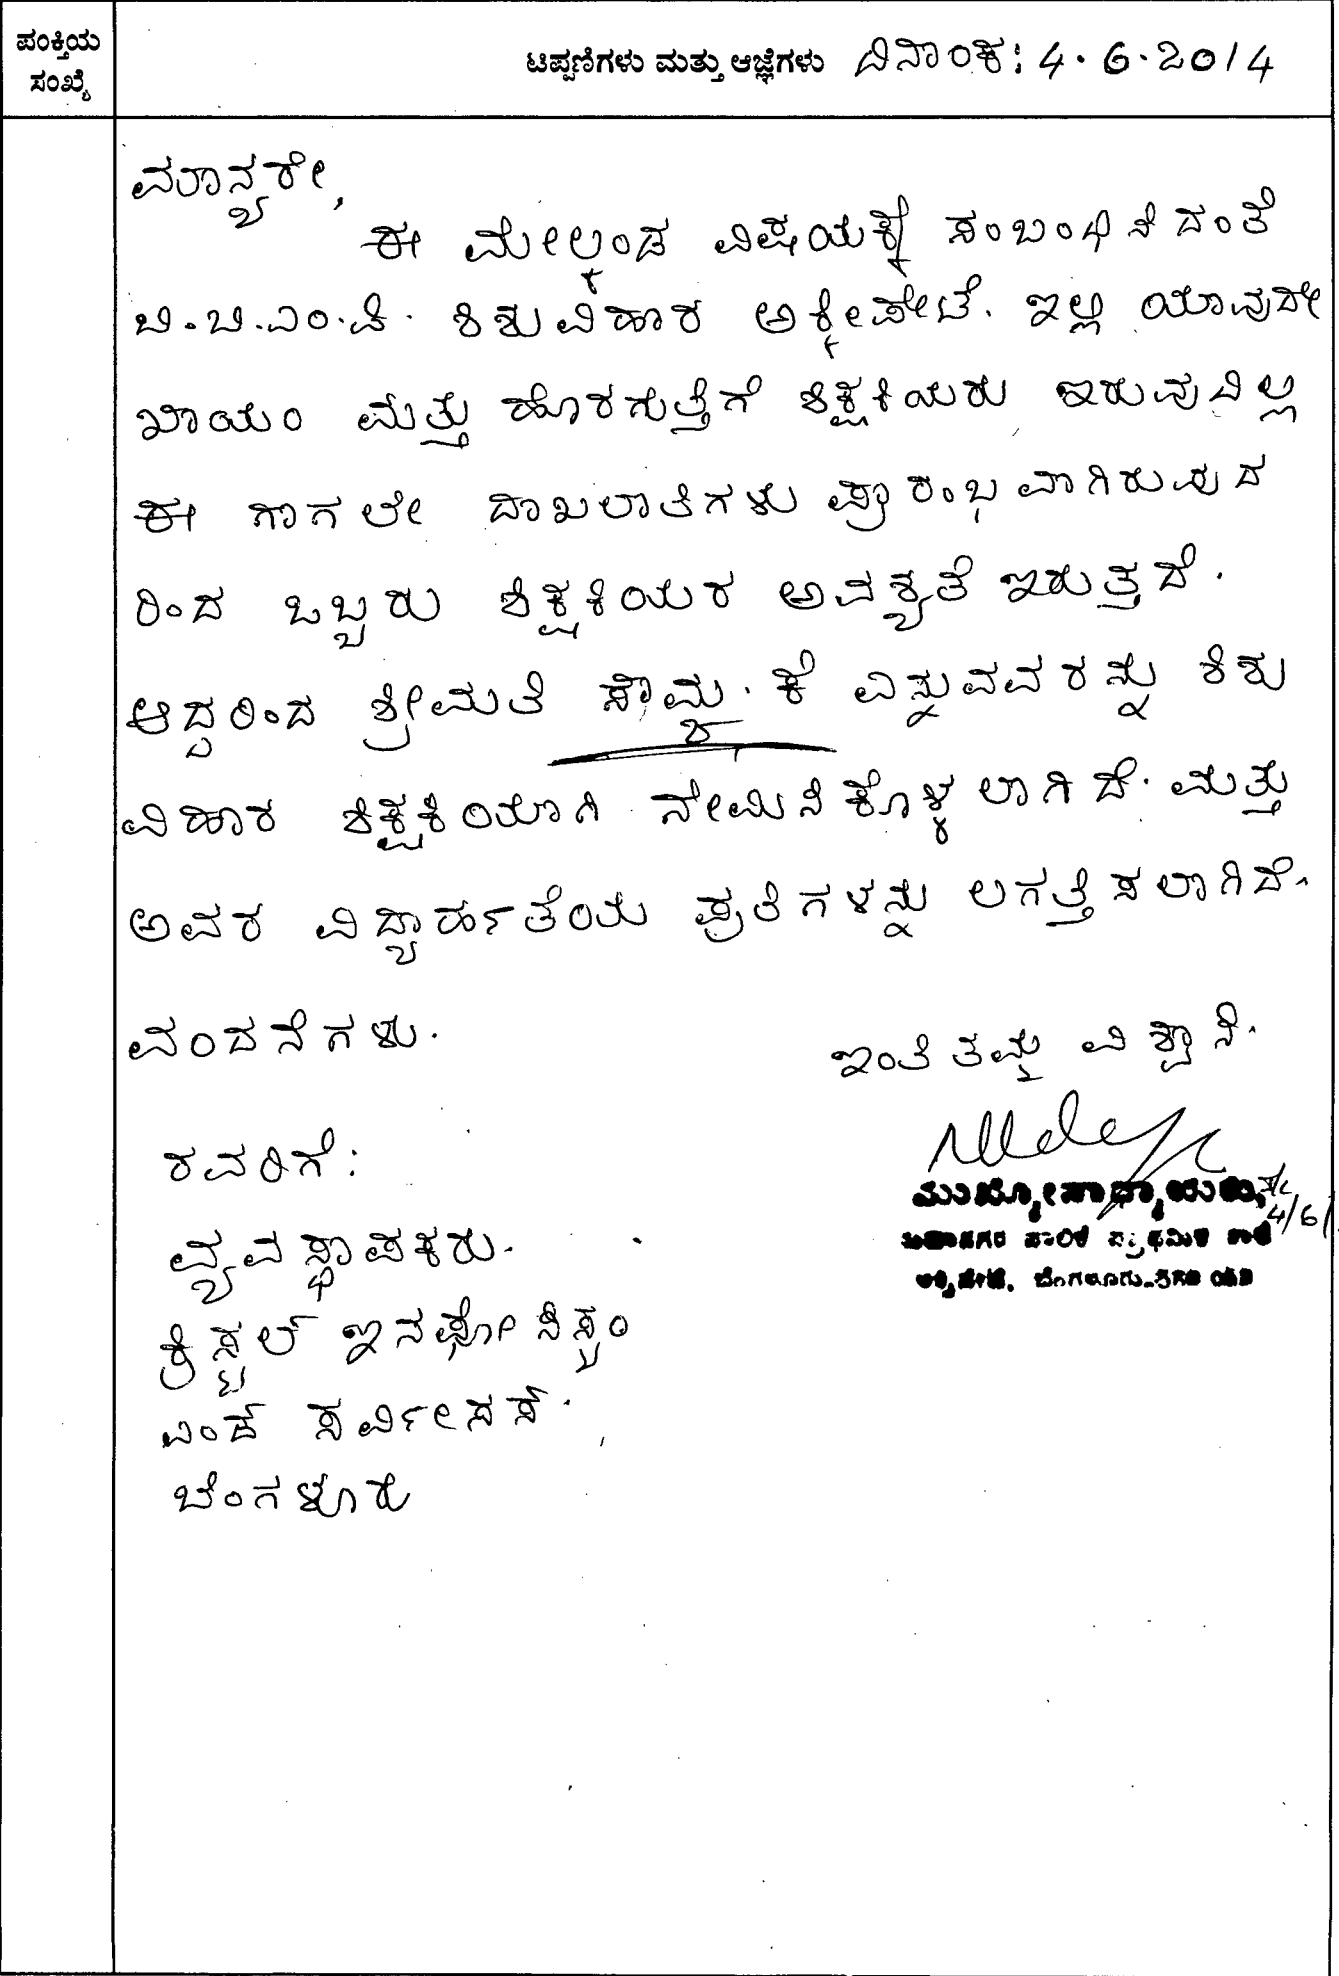 ಪಂಕ್ತಿಯ
ಸಂಖ್ಯೆ
ಟಿಪ್ಪಣಿಗಳು ಮತ್ತು ಆಜ್ಞೆಗಳು ದಿನಾಂಕ: 4.6.2014
ಮಾನ್ಯರೇ,
ಈ ಮೇಲ್ಕಂಡ ವಿಷಯಕ್ಕೆ ಸಂಬಂಧಿಸಿದಂತೆ
ಬಿ.ಬಿ.ಎಂ.ಪಿ. ಶಿಶುವಿಹಾರ ಅಕ್ಕಿಪೇಟೆ. ಇಲ್ಲಿ ಯಾವುದೇ
ಖಾಯಂ ಮತ್ತು ಹೊರಗುತ್ತಿಗೆ ಶಿಕ್ಷಕಿಯರು ಇರುವುದಿಲ್ಲ
ಈ ಗಾಗಲೇ ದಾಖಲಾತಿಗಳು ಪ್ರಾರಂಭವಾಗಿರುವುದ
ರಿಂದ ಒಬ್ಬರು ಶಿಕ್ಷಕಿಯರ ಅವಶ್ಯತೆ ಇರುತ್ತದೆ.
ಆದ್ದರಿಂದ ಶ್ರೀಮತಿ ಸೌಮ್ಯ. ಕೆ ಎನ್ನುವವರನ್ನು ಶಿಶು
ವಿಹಾರ ಶಿಕ್ಷಕಿಯಾಗಿ ನೇಮಿಸಿಕೊಳ್ಳಲಾಗಿದೆ. ಮತ್ತು
ಅವರ ವಿದ್ಯಾರ್ಹತೆಯ ಪ್ರತಿಗಳನ್ನು ಲಗತ್ತಿಸಲಾಗಿದೆ.
ವಂದನೆಗಳು.
ಇಂತಿ ತಮ್ಮ ವಿಶ್ವಾಸಿ.
ರವರಿಗೆ:
ಮುಖ್ಯೋಪಾಧ್ಯಾಯರು,
4/6/
ವ್ಯವಸ್ಥಾಪಕರು.
ಮಹಾನಗರ ಪಾಲಿಕೆ ಪ್ರಾಥಮಿಕ ಶಾಲೆ
ಅಕ್ಕಿಪೇಟೆ, ಬೆಂಗಳೂರು
ಕ್ರಿಸ್ಟಲ್ ಇನಫೋಸಿಸ್ಟಂ
ಎಂಡ್ ಸರ್ವೀಸಸ್.
ಬೆಂಗಳೂರು